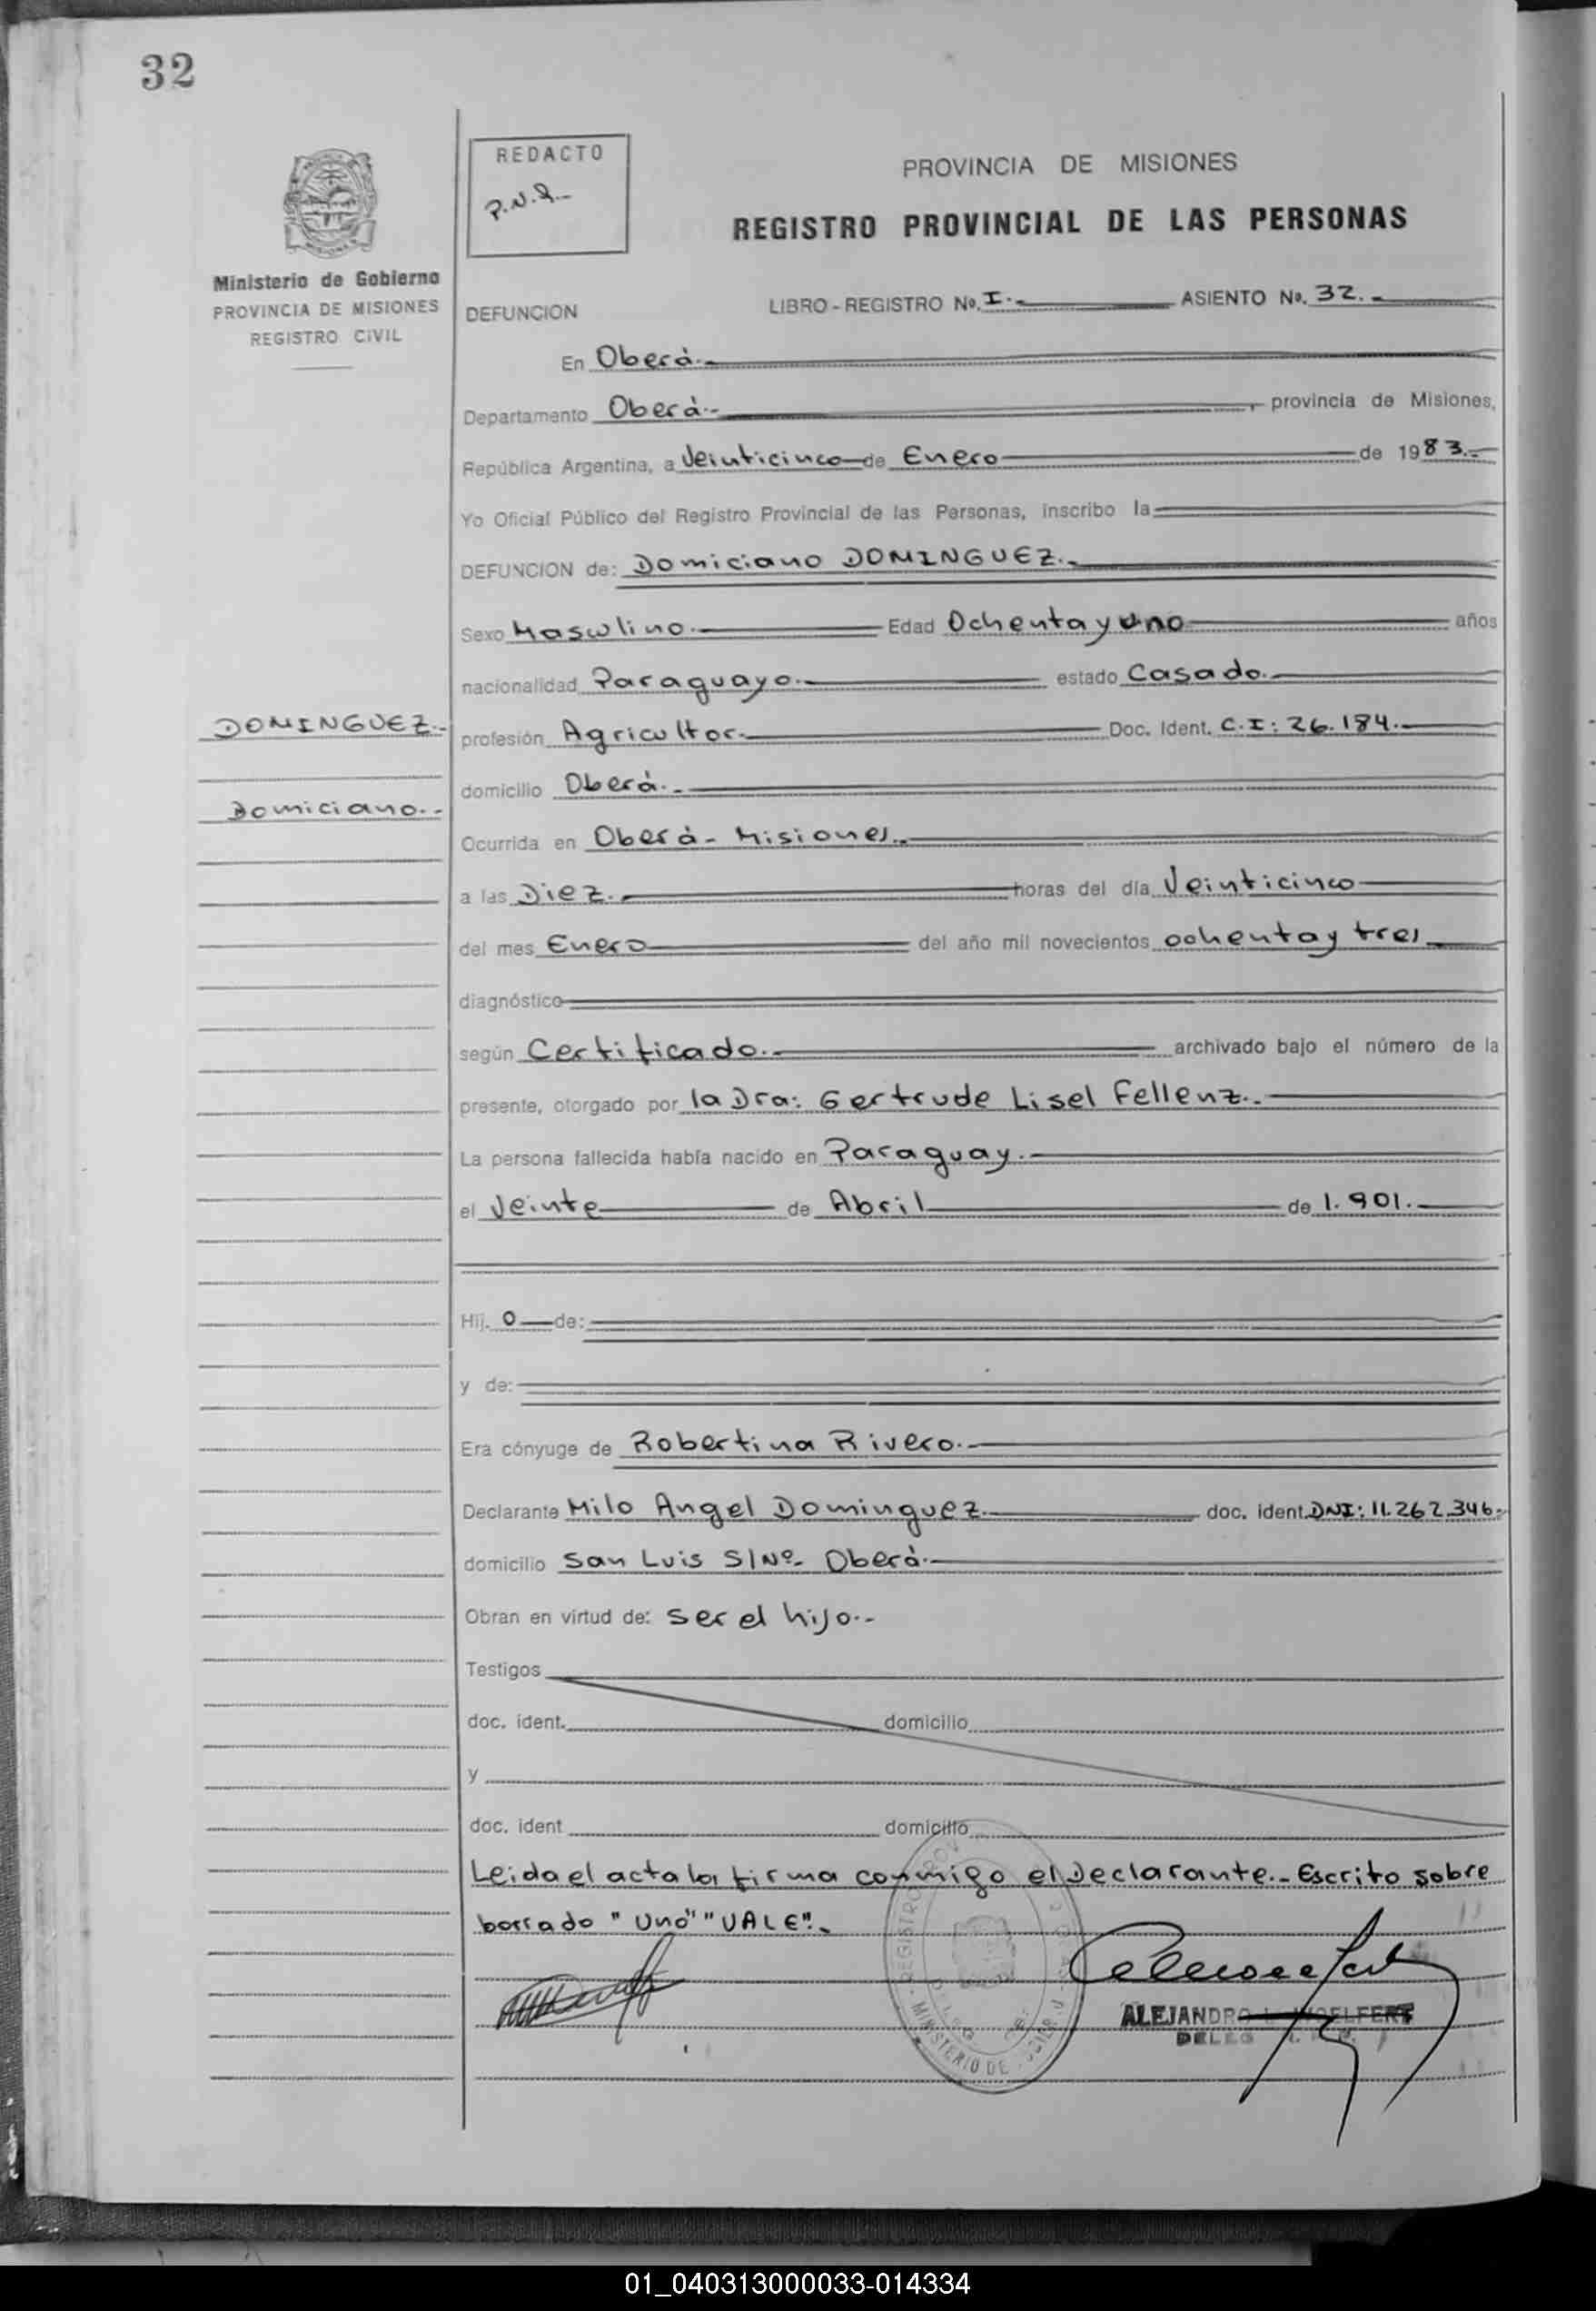 32
REDACTO
P.N.R.-
PROVINCIA DE MISIONES
REGISTRO PROVINCIAL DE LAS PERSONAS
Ministerio de Gobierno
PROVINCIA DE MISIONES
REGISTRO CIVIL
DEFUNCION LIBRO - REGISTRO No. I.- ASIENTO No. 32.-
En Oberá.-
Departamento Oberá.- , provincia de Misiones,
República Argentina, a Veinticinco de Enero de 1983.-
Yo Oficial Público del Registro Provincial de las Personas, inscribo la
DEFUNCION de: Domiciano DOMINGUEZ.-
Sexo Masculino.- Edad Ochenta y uno años
nacionalidad Paraguayo.- estado Casado.-
DOMINGUEZ.-
profesión Agricultor.- Doc. Ident. C.I: 26.184.-
domicilio Oberá.-
Domiciano.-
Ocurrida en Oberá - Misiones.-
a las Diez.- horas del día Veinticinco
del mes Enero del año mil novecientos ochenta y tres.-
diagnóstico
según Certificado.- archivado bajo el número de la
presente, otorgado por la Dra: Gertrude Lisel Fellenz.-
La persona fallecida había nacido en Paraguay.-
el Veinte de Abril de 1.901.-
Hij. o de:
y de:
Era cónyuge de Robertina Rivero.-
Declarante Milo Angel Dominguez.- doc. ident. DNI: 11.262.346.-
domicilio San Luis S/Nº- Oberá.-
Obran en virtud de: ser el hijo.-
Testigos
doc. ident. domicilio
y
doc. ident domicilio
Leida el acta la firma conmigo el Declarante.- Escrito sobre
borrado "uno" "VALE".-
ALEJANDRO
01_040313000033-014334